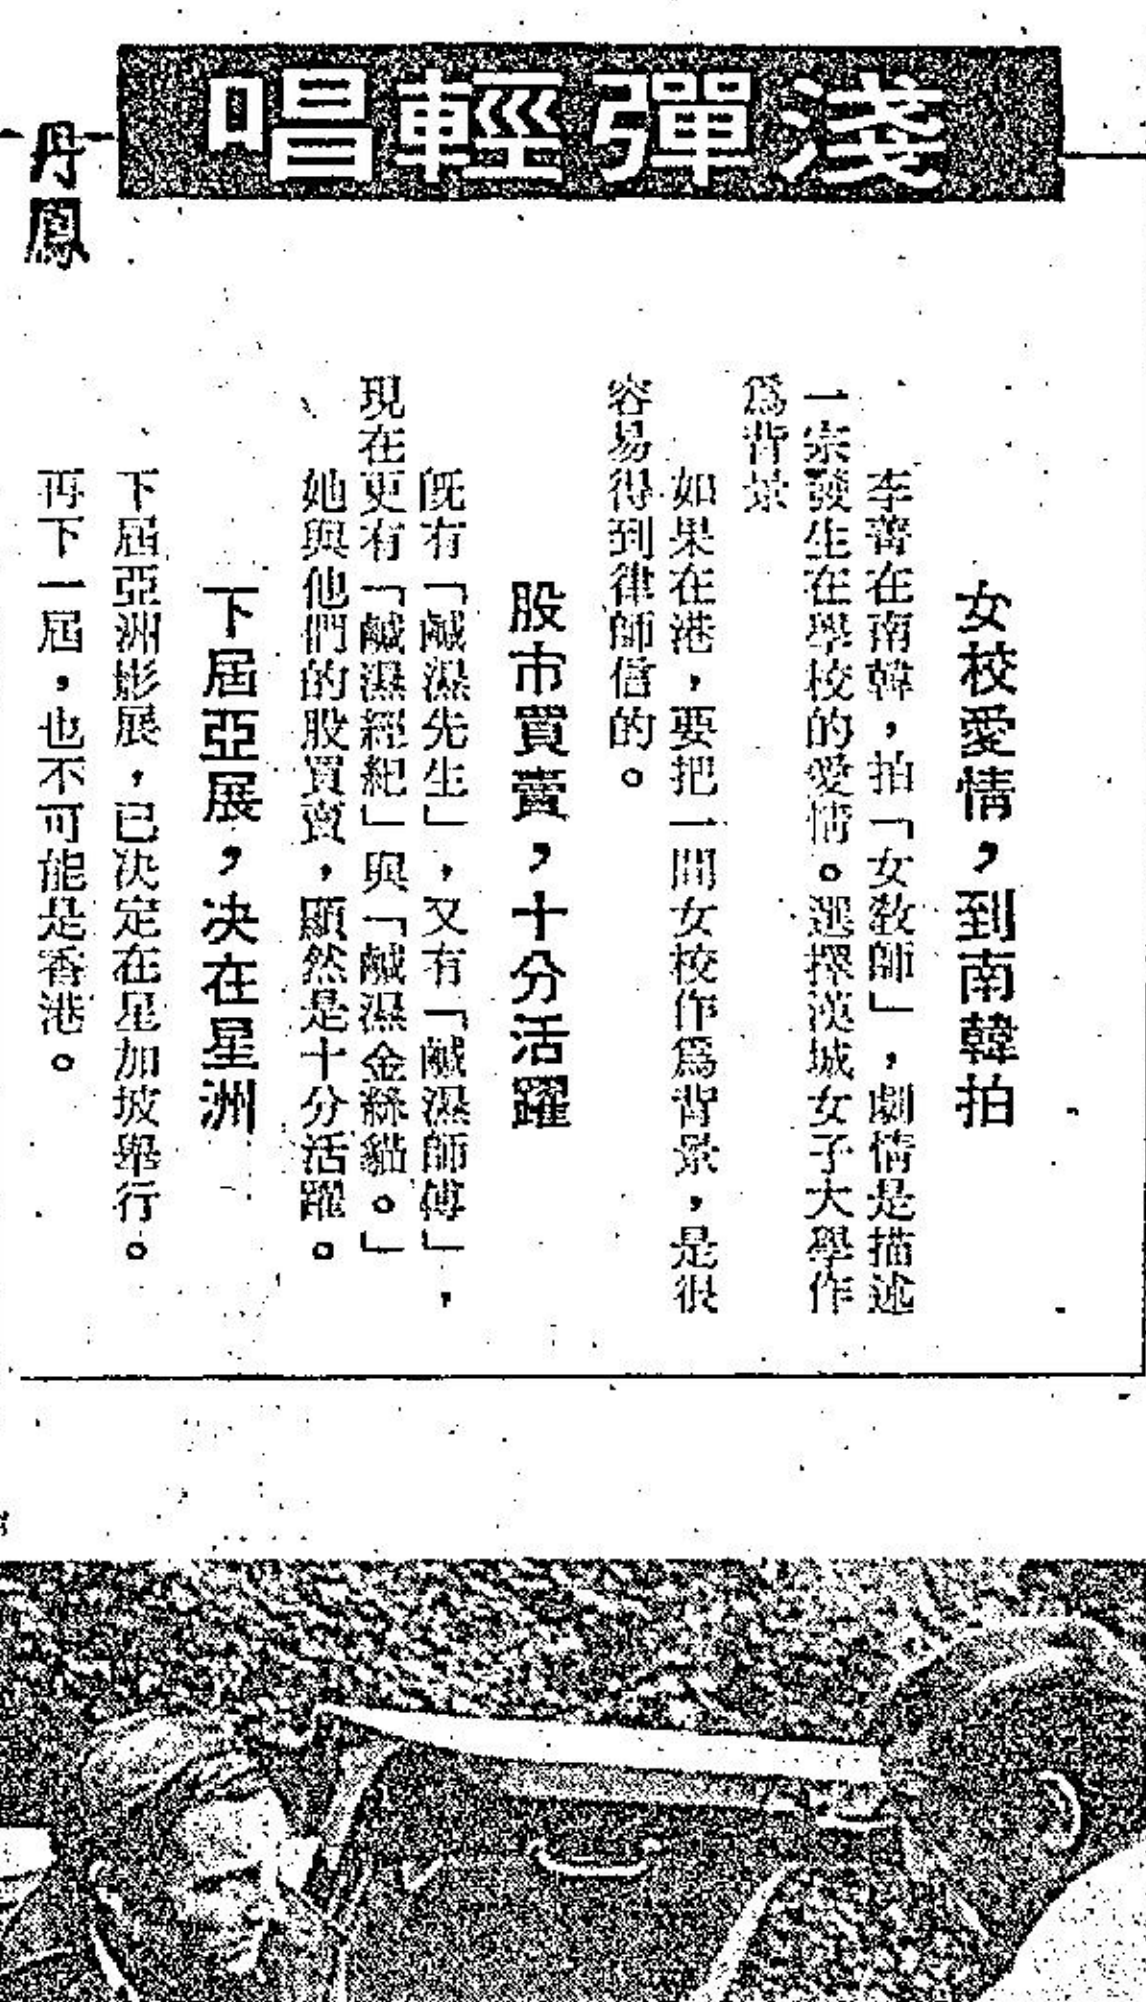 淺彈輕唱
丹鳳
女校愛情，到南韓拍
李菁在南韓，拍「女敎師」，劇情是描述
一宗發生在學校的愛情。選擇漢城女子大學作
爲背景
如果在港，要把一間女校作爲背景，是很
容易得到律師信的。
股市買賣，十分活躍
旣有「鹹濕先生」，又有「鹹濕師傅」，
現在更有「鹹濕經紀」與「鹹濕金絲貓。」
她與他們的股買賣，顯然是十分活躍。
下屆亞展，决在星洲
下屆亞洲影展，已决定在星加坡舉行。
再下一屆，也不可能是香港。